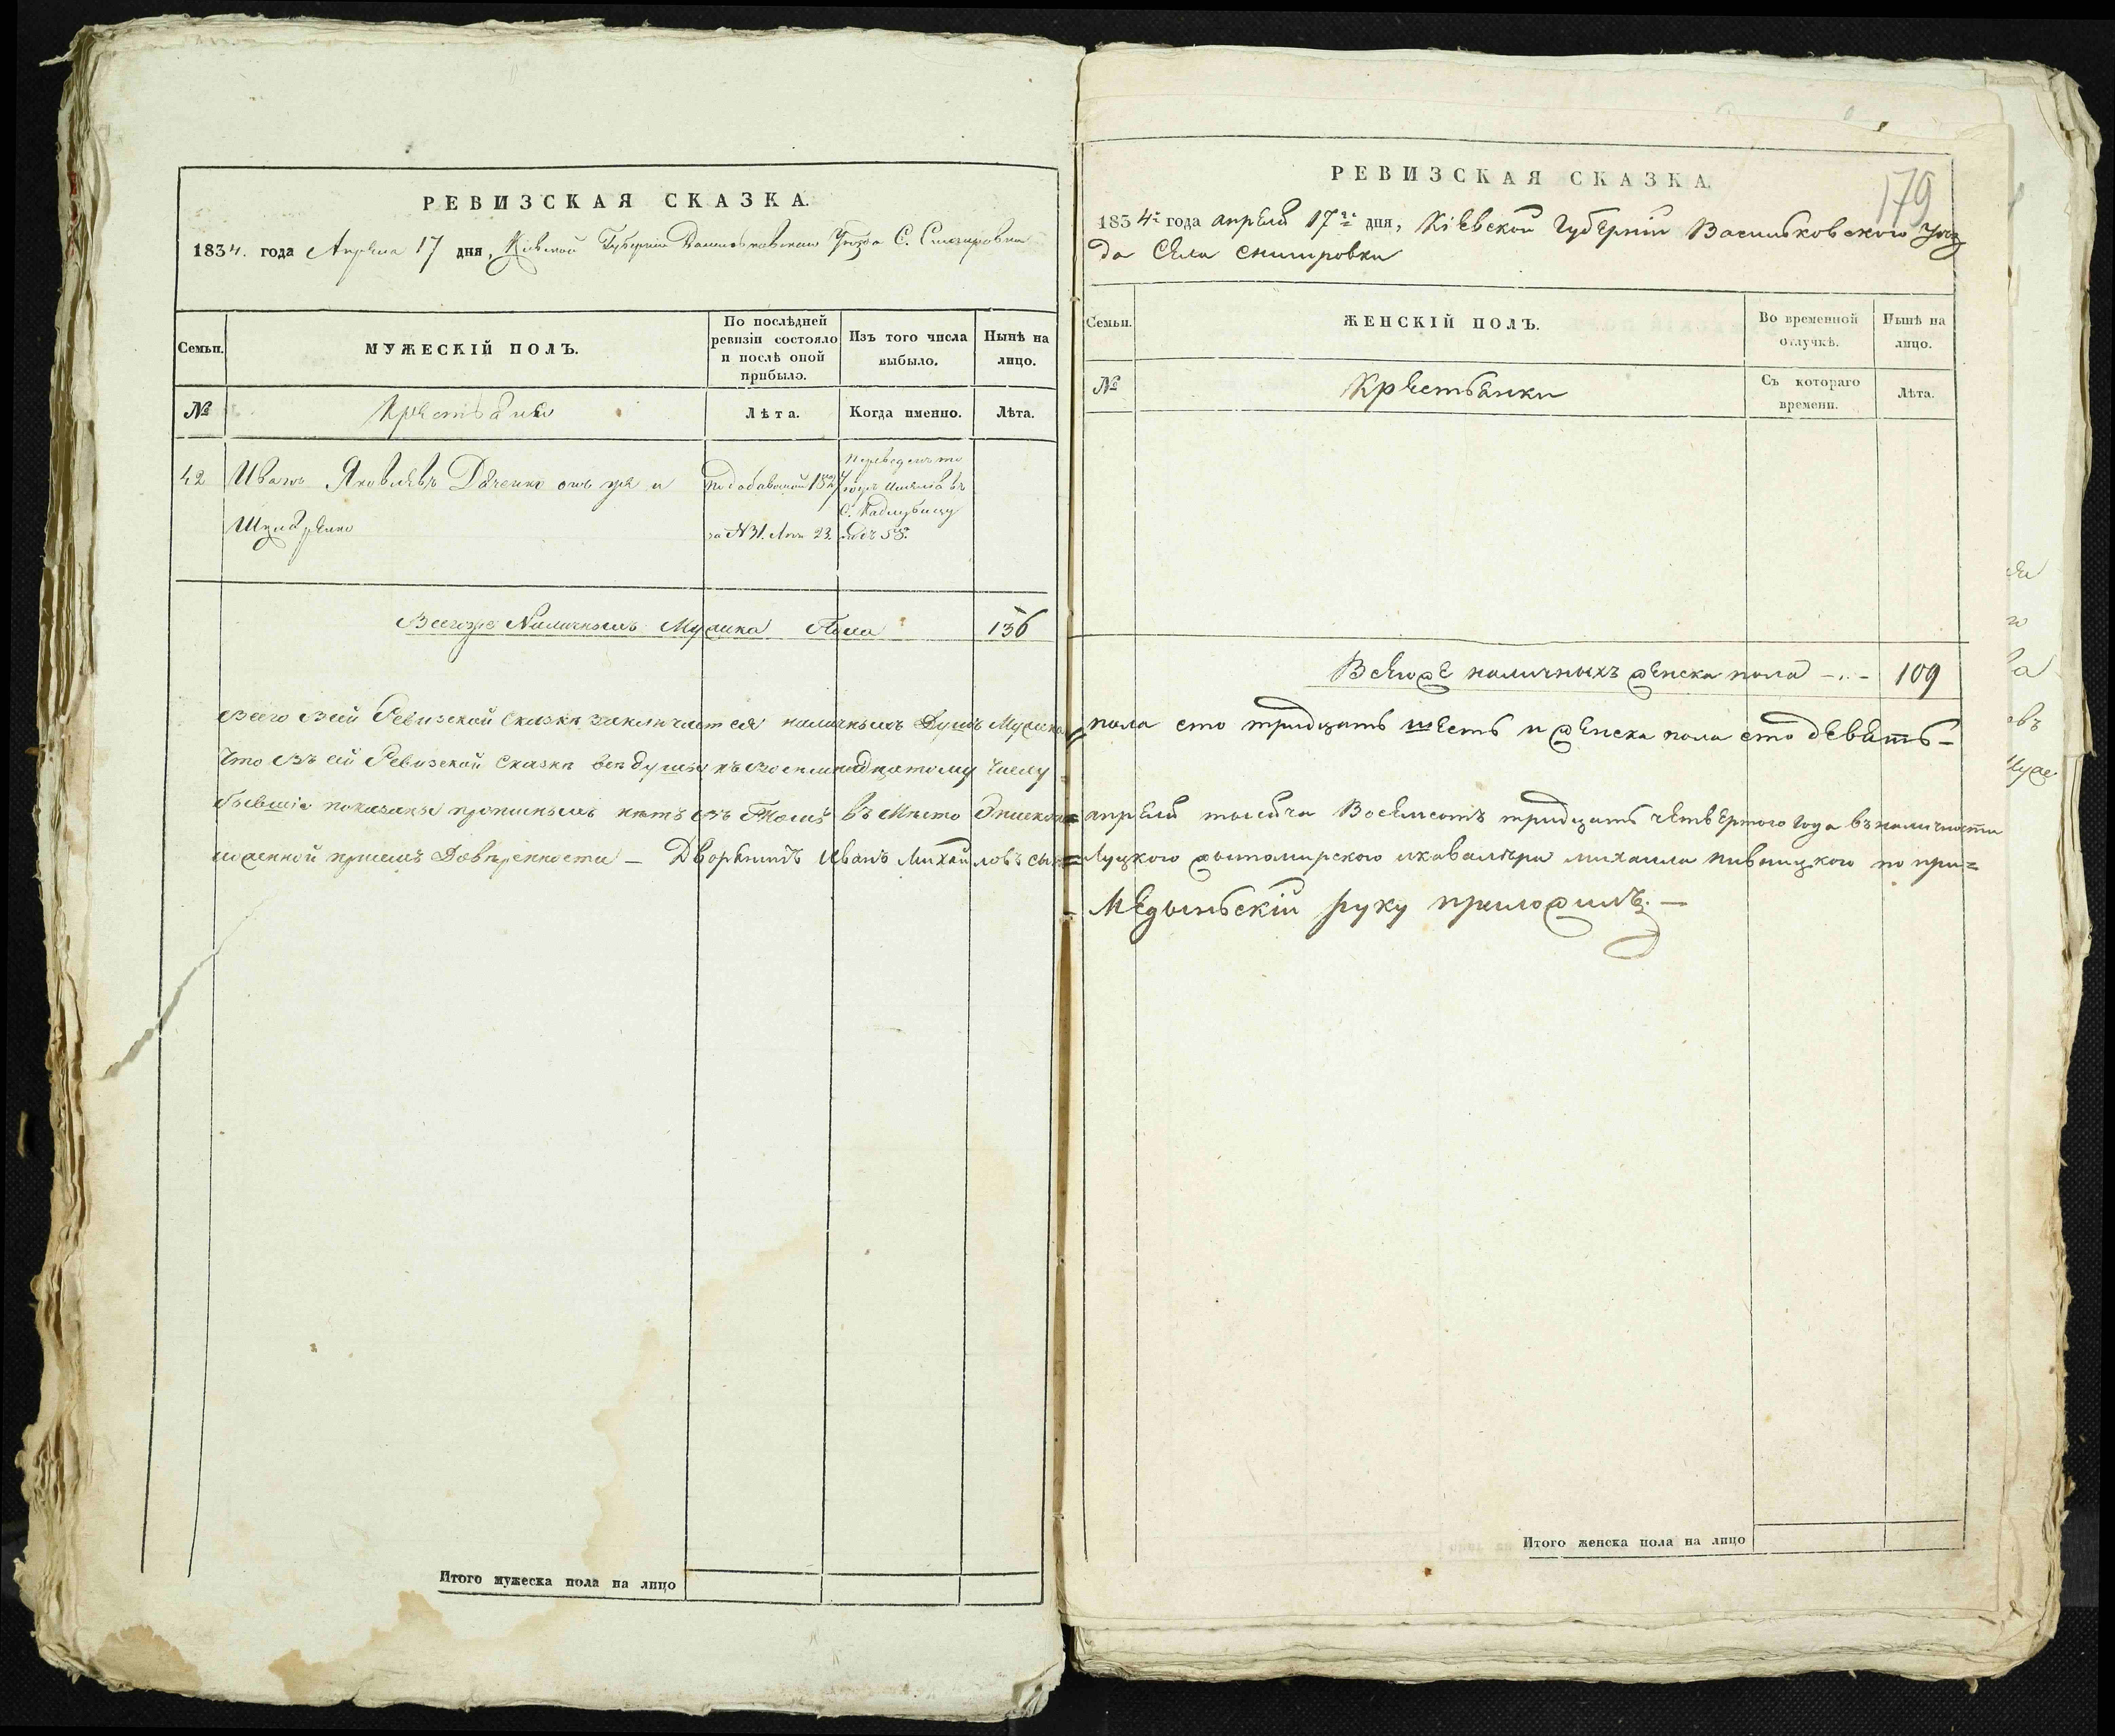 РЕВИЗСКАЯ СКАЗКА.
1834. года Апреля 17 дня, Кіевской Губерніи Васильковскаго Уезда С.
Семьи.
МУЖЕСКІЙ ПОЛЪ.
По послѣдней ревизіи состояло и послѣ оной прибыло.
Изъ того числа выбыло.
Нынѣ на лицо.
№
Крестьяне
Лѣта.
Когда именно.
Лѣта.
42
Иванъ Яковлевъ Дяченко онъ же и
по добавочной
въ
С.
за №31. 23.
Всегоже Наличныхъ Мужска Пола
136
Всего Всей Ревизской Сказкѣ заключается наличныхъ Душъ Мужска
Что Въ сей Ревизской Сказкѣ всѣ душы къ восемнадцатому Числу
бывшіе показаны прописныхъ нѣтъ въ Томъ въ Мѣсто Епископа
ложенной присемъ Довѣренности — Дворянинъ Иванъ Михайловъ сынъ
Итого мужеска пола на лицо
179
РЕВИЗСКАЯ СКАЗКА.
1834г года апреля 17го дня, Кіевской Губерніи Васильковского Уез
да Села
Семьи.
ЖЕНСКІЙ ПОЛЪ.
Во временной отлучкѣ.
Нынѣ на лицо.
№
Крестьянки
Съ котораго времени.
Лѣта.
Всегоже наличныхъ женска пола
109
пола сто тридцать шесть и женска пола сто девять—
апреля тысяча Восемсотъ тридцать четвертого года въ наличности
Луцкого житомирского икавалера михаила пивницкого по при=
Медыньскій руку приложилъ. —
Итого женска пола на лицо